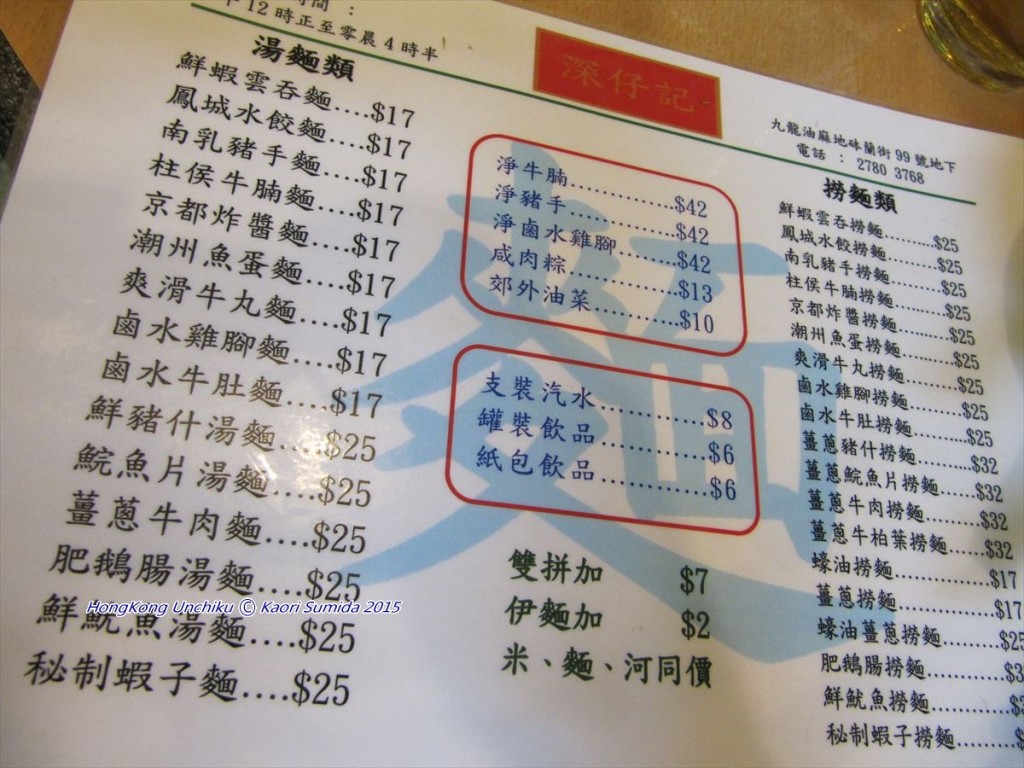 時間：
12時正至零晨4時半
深仔記
九龍油麻地砵蘭街99號地下
電話：2780 3768
湯麵類
鮮蝦雲吞麵....$17
鳳城水餃麵....$17
南乳豬手麵....$17
柱侯牛腩麵....$17
京都炸醬麵....$17
潮州魚蛋麵....$17
爽滑牛丸麵....$17
鹵水雞腳麵....$17
鹵水牛肚麵....$17
鮮豬什湯麵....$25
鯇魚片湯麵....$25
薑蔥牛肉麵....$25
肥鵝腸湯麵....$25
鮮魷魚湯麵....$25
秘制蝦子麵....$25
淨牛腩..............$42
淨豬手..............$42
淨鹵水雞腳........$42
咸肉粽..............$13
郊外油菜...........$10
支裝汽水...........$8
罐裝飲品...........$6
紙包飲品...........$6
雙拼加 $7
伊麵加 $2
米、麵、河同價
麵
撈麵類
鮮蝦雲吞撈麵........$25
鳳城水餃撈麵........$25
南乳豬手撈麵........$25
柱侯牛腩撈麵........$25
京都炸醬撈麵........$25
潮州魚蛋撈麵........$25
爽滑牛丸撈麵........$25
鹵水雞腳撈麵........$25
鹵水牛肚撈麵........$25
薑蔥豬什撈麵........$32
薑蔥鯇魚片撈麵.....$32
薑蔥牛肉撈麵........$32
薑蔥牛柏葉撈麵.....$32
蠔油撈麵..............$17
薑蔥撈麵..............$17
蠔油薑蔥撈麵........$25
肥鵝腸撈麵...........$3
鮮魷魚撈麵...........$3
秘制蝦子撈麵........$
HongKong Unchiku © Kaori Sumida 2015